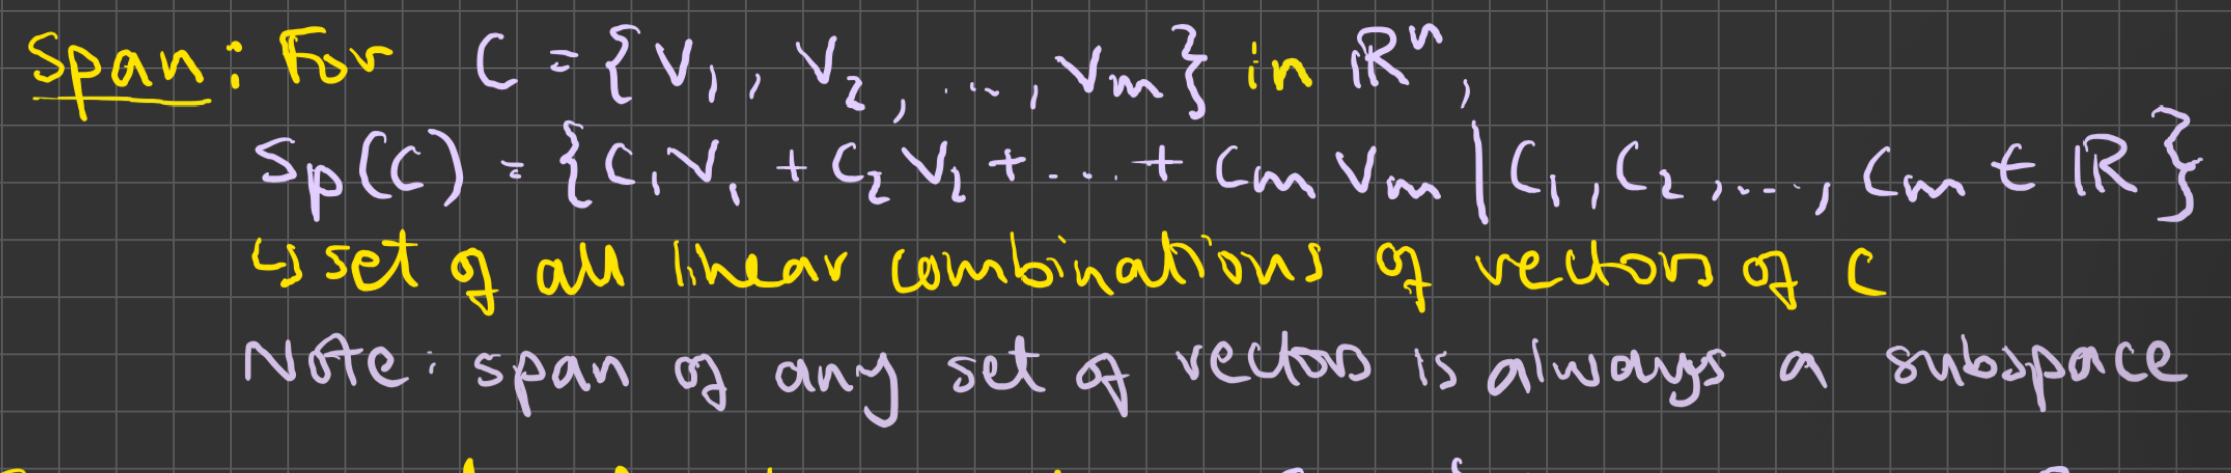 Span: For C = {V₁, V₂, ..., Vₘ} in ℝⁿ,
Sp(C) = {C₁V₁ + C₂V₂ + ... + CₘVₘ | C₁, C₂, ..., Cₘ ∈ ℝ}
↳ set of all linear combinations of vectors of C
Note: span of any set of vectors is always a subspace